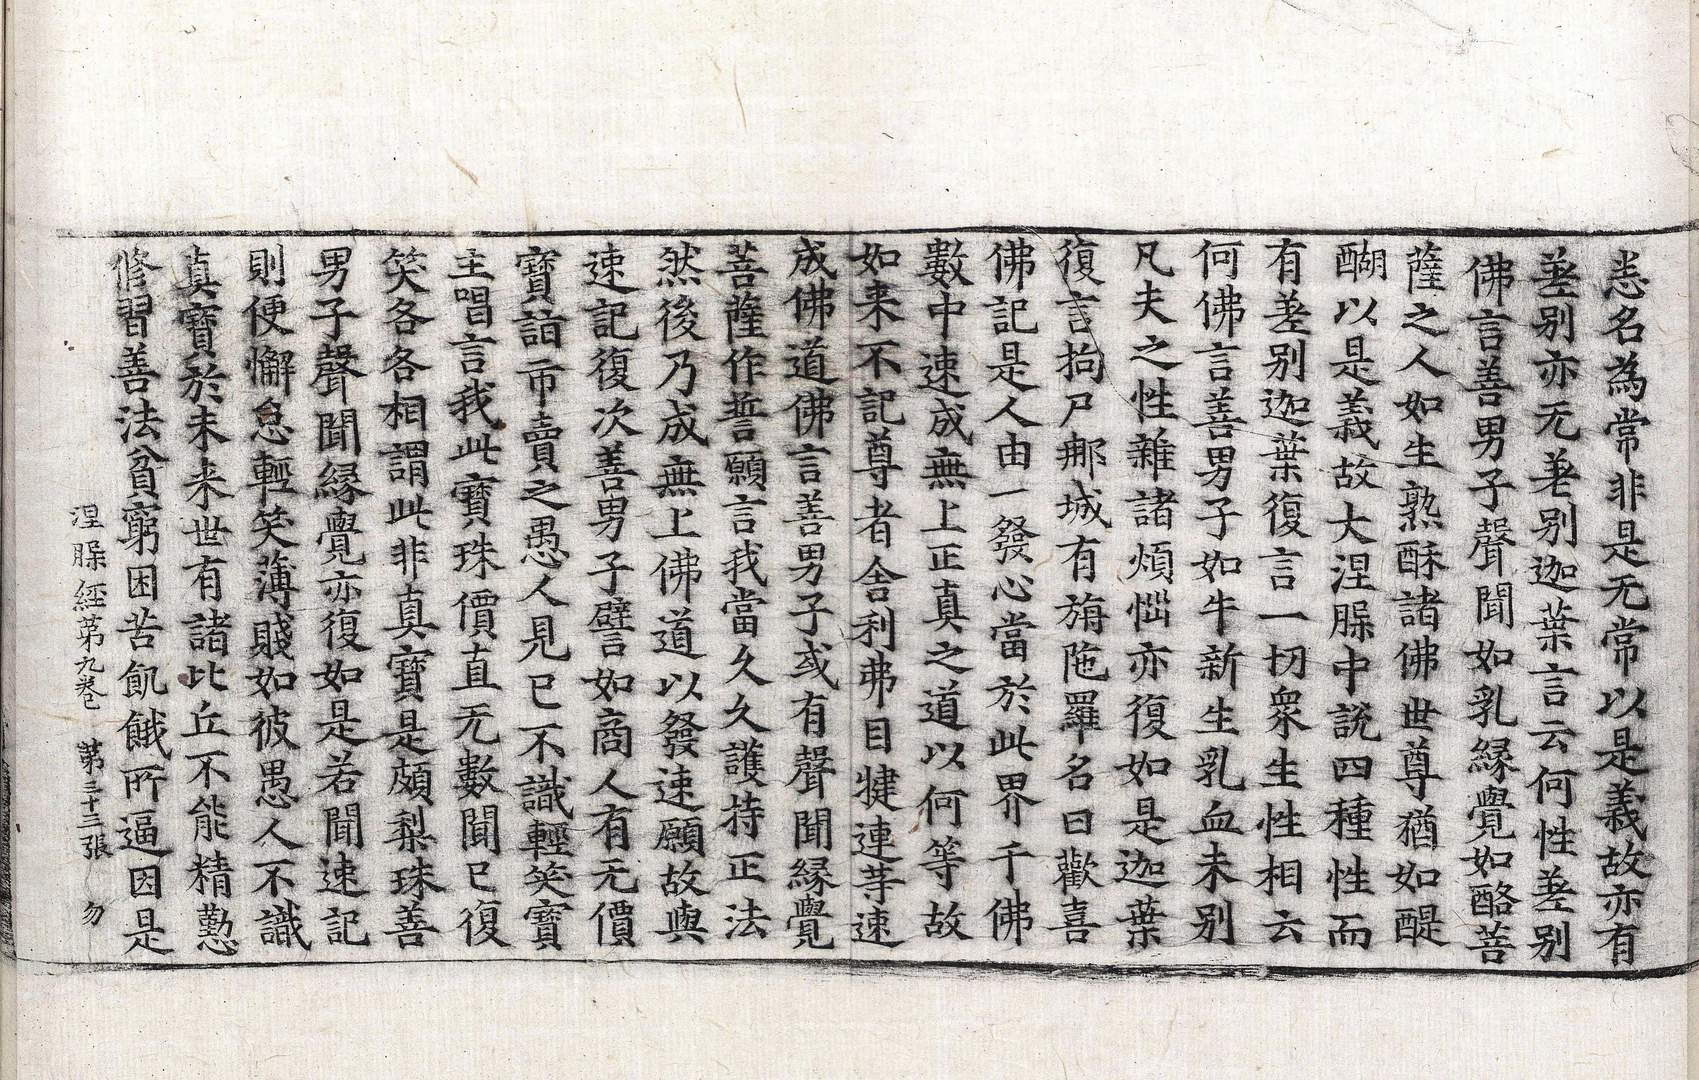 恙名為常非是无常以是義故亦有
差别亦无差别迦葉言云何性差别
佛言善男子聲聞如乳縁覺如酪菩
薩之人如生熟酥諸佛世尊猶如醍
醐以是義故大涅槃中說四種性而
有差别迦葉復言一切衆生性相云
何佛言善男子如牛新生乳血未别
凡夫之性雜諸煩惱亦復如是迦葉
復言拘尸那城有旃陁羅名曰歡喜
佛記是人由一發心當於此界千佛
數中速成無上正真之道以何等故
如来不記尊者舎利弗目揵連等速
成佛道佛言善男子或有聲聞縁覺
菩薩作誓願言我當久久護持正法
然後乃成無上佛道以發速願故與
速記復次善男子譬如商人有无價
寶詣市賣之愚人見已不識輕笑寶
主唱言我此寶珠價直无數聞已復
笑各各相謂此非真寶是頗梨珠善
男子聲聞縁覺亦復如是若聞速記
則便懈怠輕笑薄賤如彼愚人不識
真寶於未来世有諸比丘不能精懃
修習善法貧窮困苦飢餓所逼因是
涅槃經第九卷 第三十三張 勿